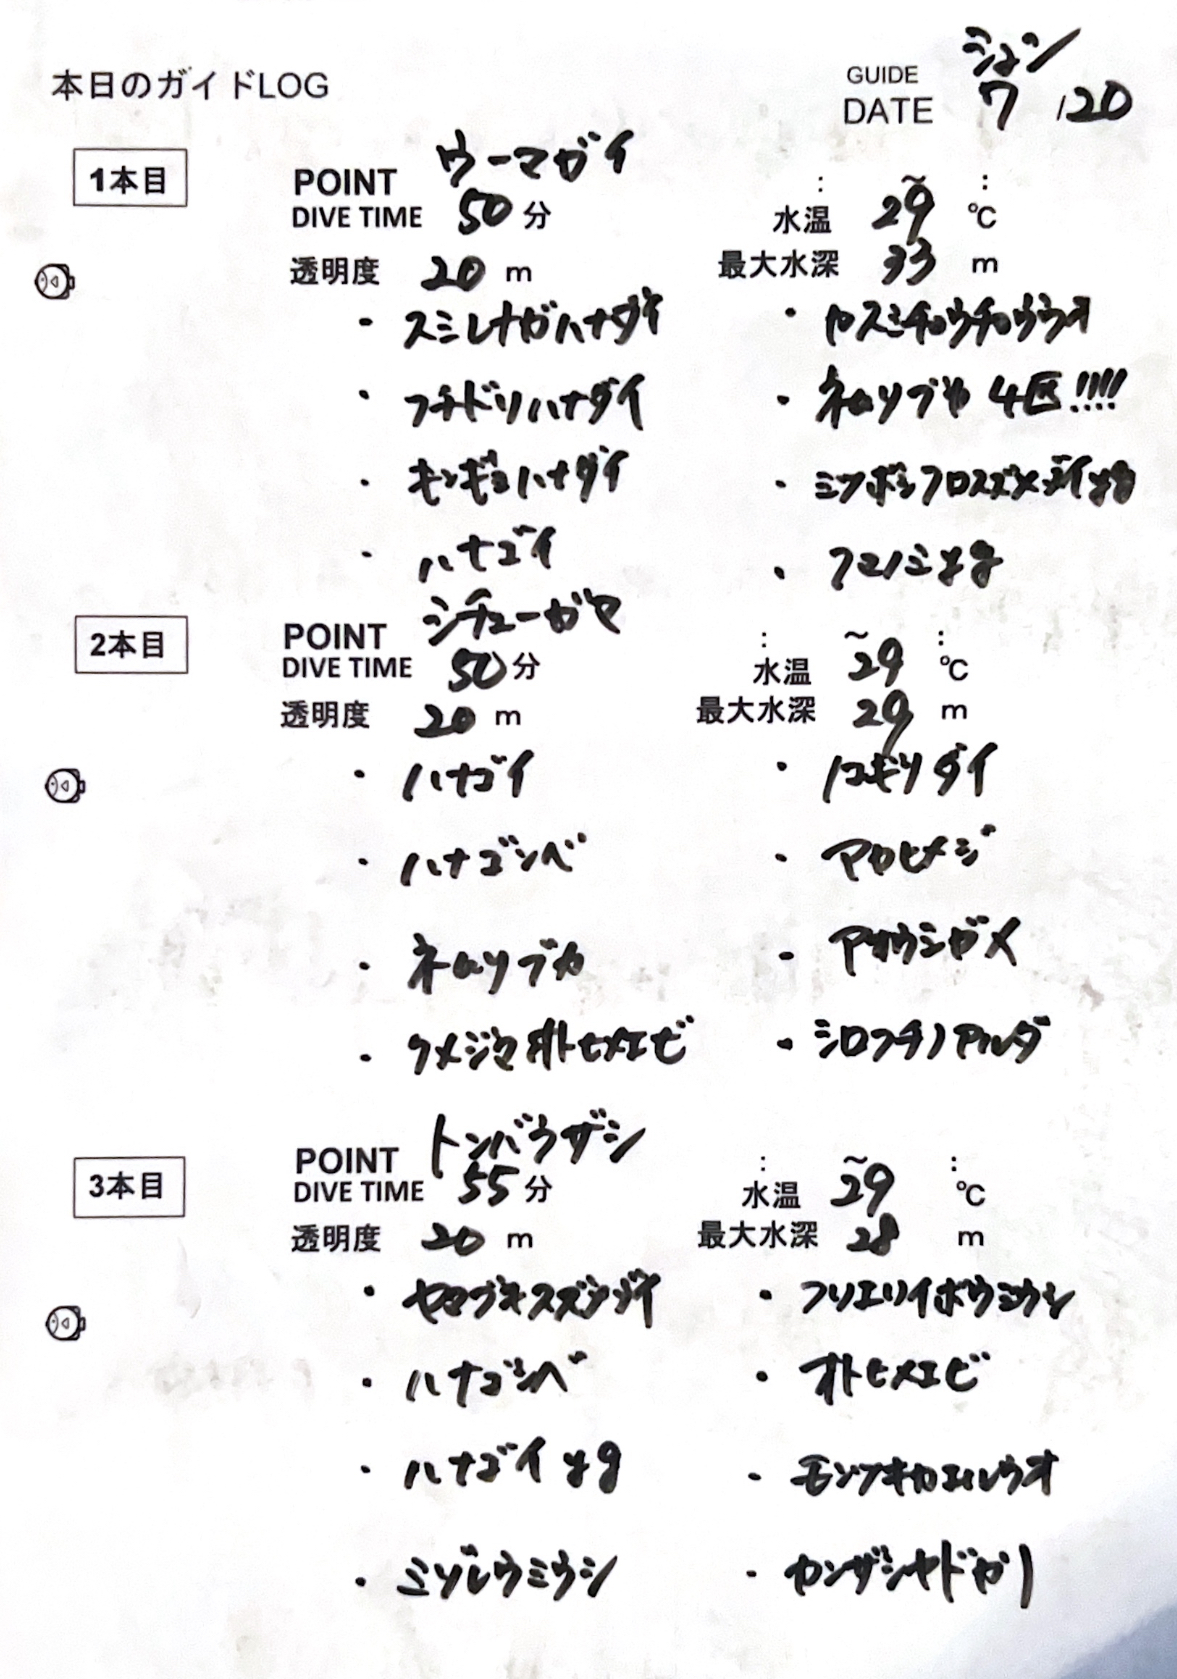 本日のガイドLOG
GUIDE ショウ
DATE 7 /20
1本目
POINT ウーマガイ : ~ :
DIVE TIME 50 分 水温 29 ℃
透明度 20 m 最大水深 33 m
・スミレナガハナダイ ・カスミチョウチョウウオ
・フチドリハナダイ ・ネムリブカ 4匹!!!!
・キンギョハナダイ ・ミツボシクロスズメダイyg
・ハナゴイ ・クマノミyg
2本目
POINT シチューガマ : ~ :
DIVE TIME 50 分 水温 29 ℃
透明度 20 m 最大水深 29 m
・ハナゴイ ・ノコギリダイ
・ハナゴンベ ・アカヒメジ
・ネムリブカ ・アオウミガメ
・クメジマオトヒメエビ ・シロブチハタ
3本目
POINT トンバラザシ : ~ :
DIVE TIME 55 分 水温 29 ℃
透明度 20 m 最大水深 28 m
・ヤマブキスズメダイ ・フリエリイボウミウシ
・ハナゴンベ ・オトヒメエビ
・ハナゴイyg ・モンツキカエルウオ
・ミゾレウミウシ ・カンザシヤドカリ